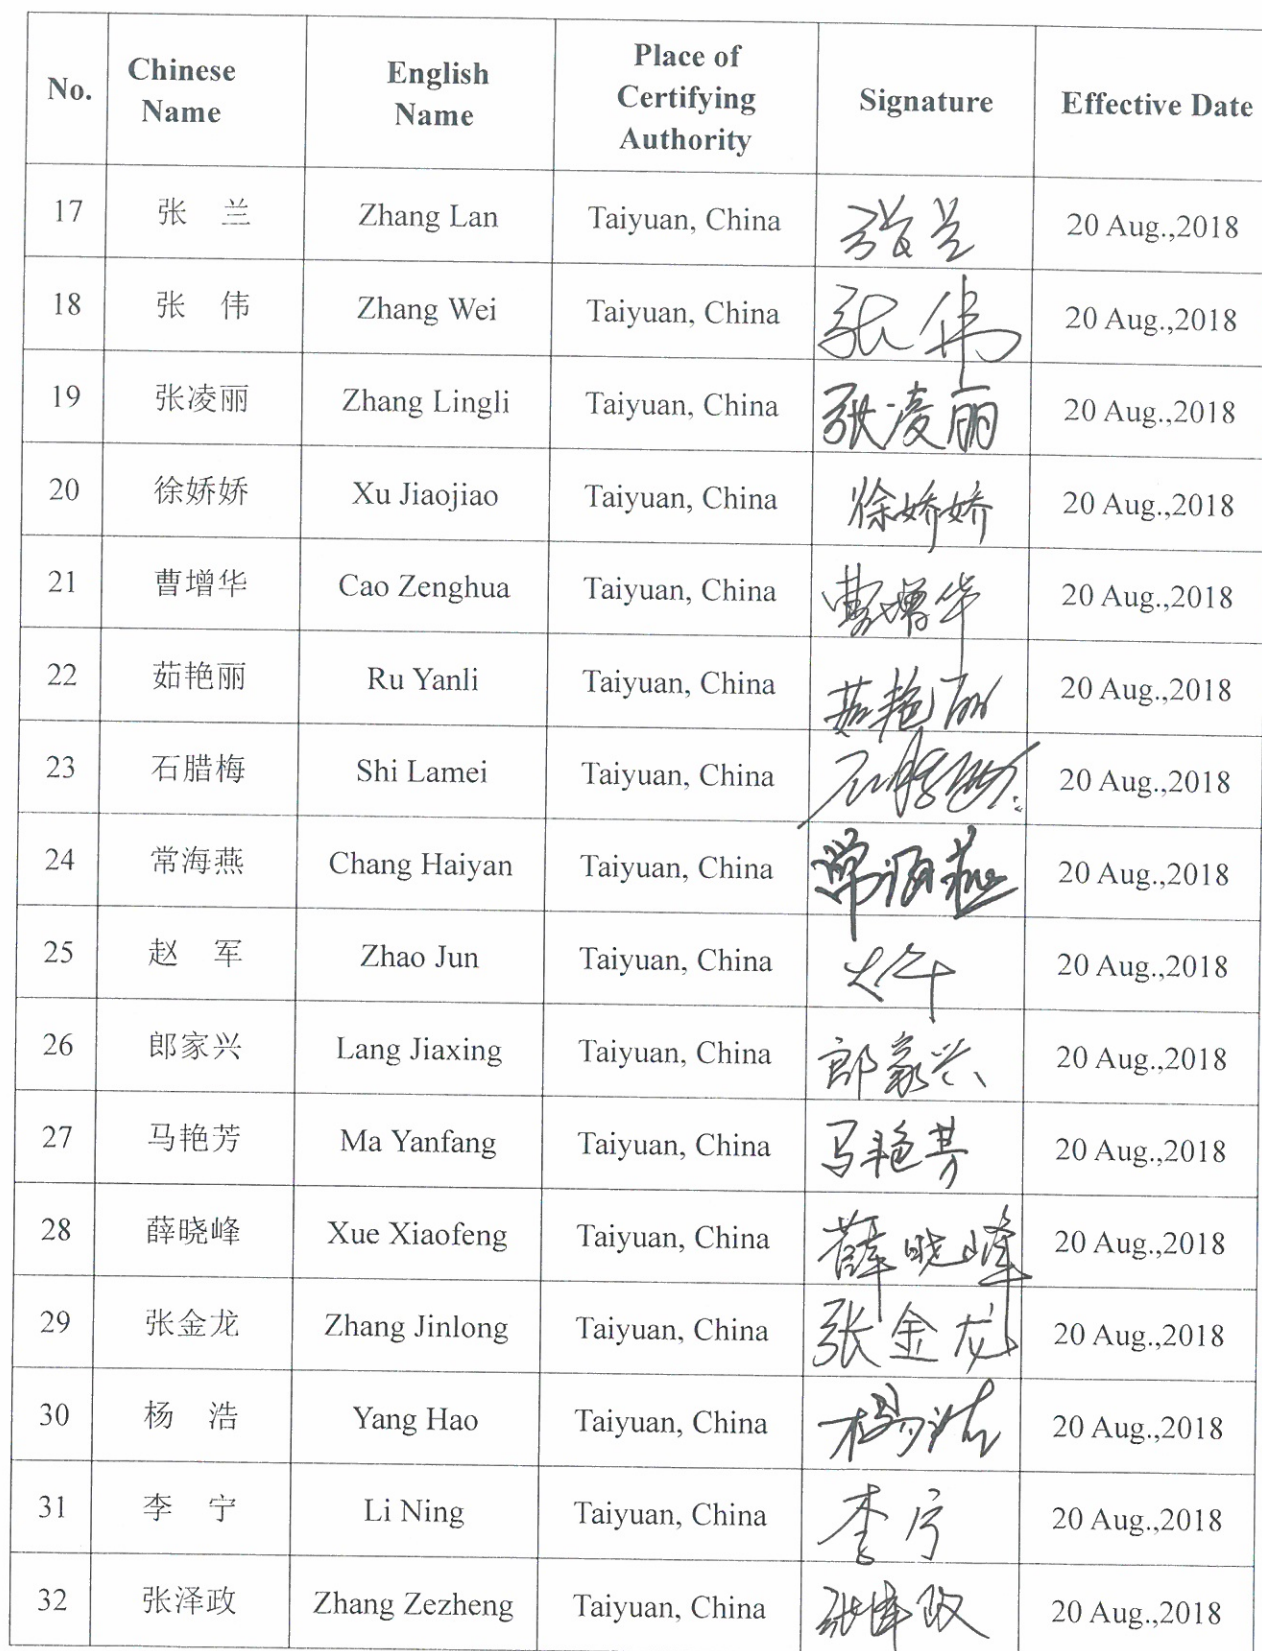 No. Chinese Name English Name Place of Certifying Authority Signature Effective Date
17 张 兰 Zhang Lan Taiyuan, China 张兰 20 Aug.,2018
18 张 伟 Zhang Wei Taiyuan, China 张伟 20 Aug.,2018
19 张凌丽 Zhang Lingli Taiyuan, China 张凌丽 20 Aug.,2018
20 徐娇娇 Xu Jiaojiao Taiyuan, China 徐娇娇 20 Aug.,2018
21 曹增华 Cao Zenghua Taiyuan, China 曹增华 20 Aug.,2018
22 茹艳丽 Ru Yanli Taiyuan, China 茹艳丽 20 Aug.,2018
23 石腊梅 Shi Lamei Taiyuan, China 20 Aug.,2018
24 常海燕 Chang Haiyan Taiyuan, China 常海燕 20 Aug.,2018
25 赵 军 Zhao Jun Taiyuan, China 20 Aug.,2018
26 郎家兴 Lang Jiaxing Taiyuan, China 郎家兴 20 Aug.,2018
27 马艳芳 Ma Yanfang Taiyuan, China 马艳芳 20 Aug.,2018
28 薛晓峰 Xue Xiaofeng Taiyuan, China 薛晓峰 20 Aug.,2018
29 张金龙 Zhang Jinlong Taiyuan, China 张金龙 20 Aug.,2018
30 杨 浩 Yang Hao Taiyuan, China 杨浩 20 Aug.,2018
31 李 宁 Li Ning Taiyuan, China 李宁 20 Aug.,2018
32 张泽政 Zhang Zezheng Taiyuan, China 张泽政 20 Aug.,2018